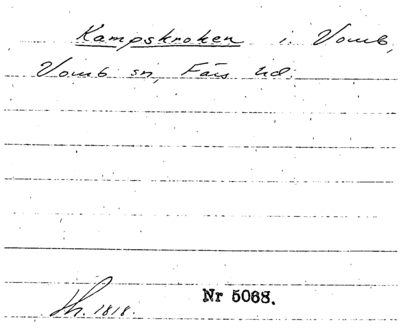 Kampskroken i Vomb,
Vomb sn, Färs hd.
Nr 5068.
Th. 1818.